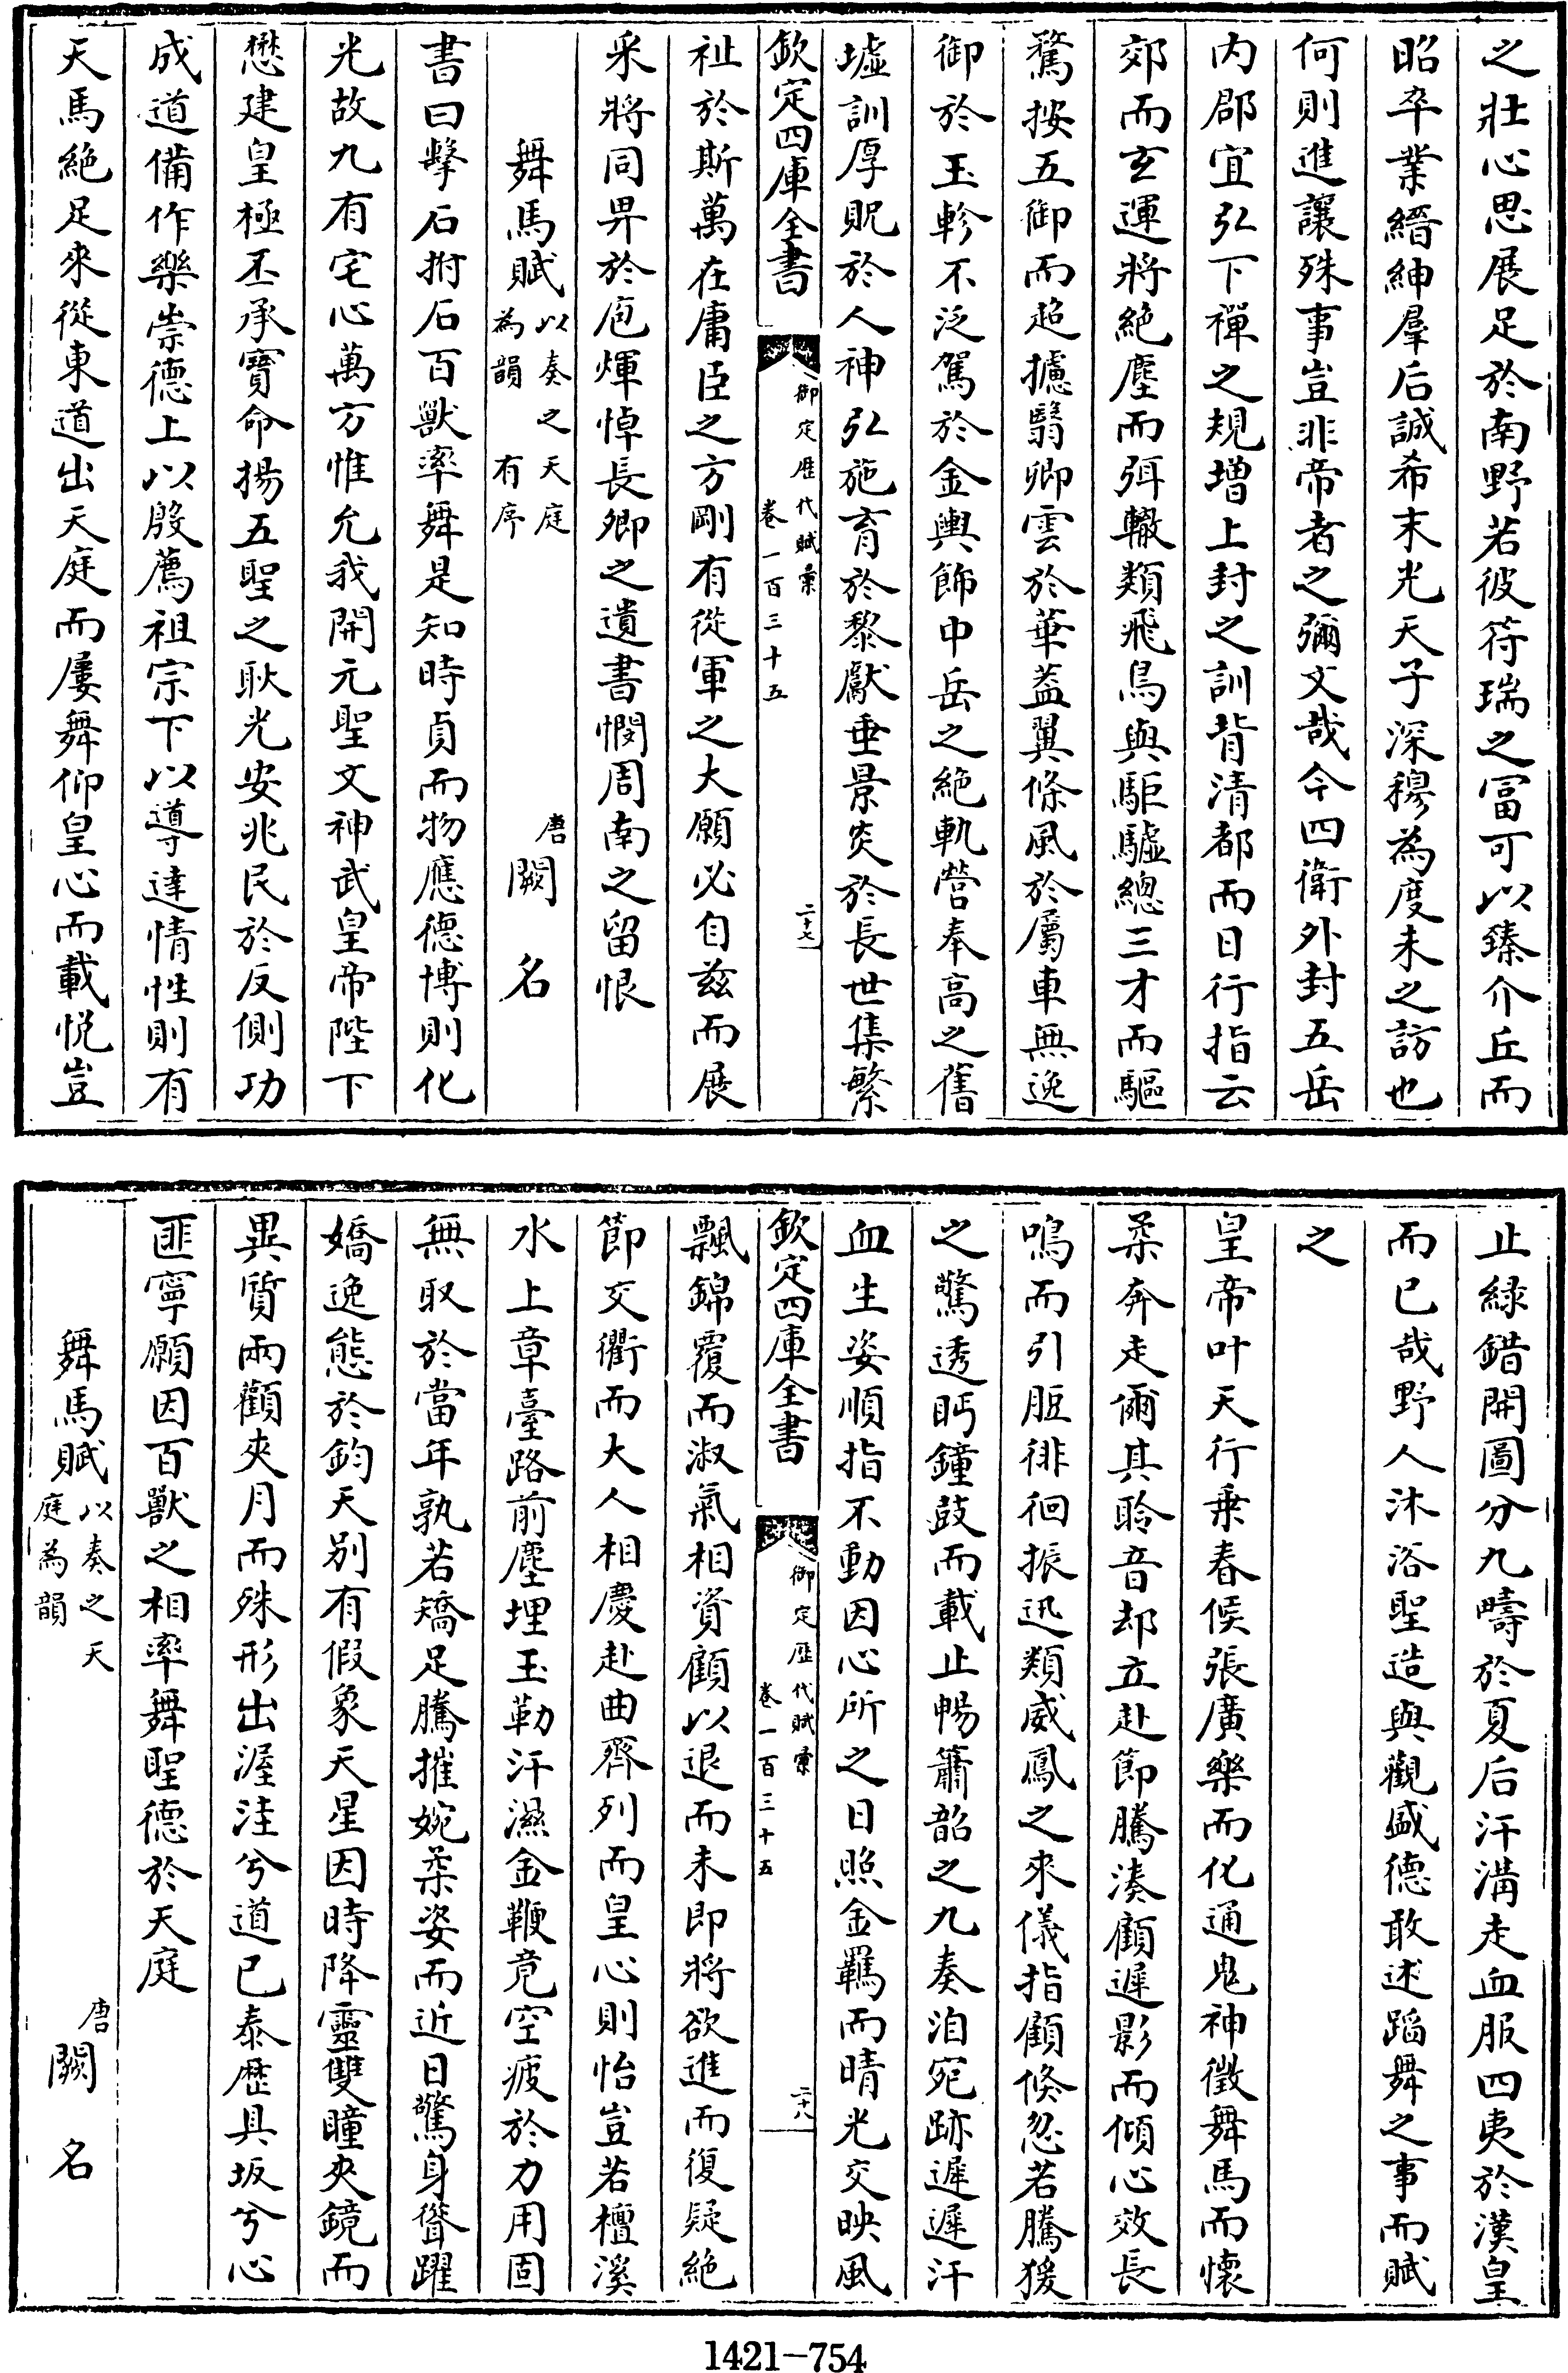 之壯心思展足於南野若彼符瑞之富可以臻介丘而
昭卒業縉紳羣后誠希末光天子深穆為度未之訪也
何則進讓殊事豈非帝者之彌文哉今四衛外封五岳
内郡宜弘下禪之規増上封之訓背清都而日行指云
郊而玄運將絶塵而弭轍類飛鳥與駏驉總三才而驅
騖按五御而超攄翳卿雲於華葢翼條風於屬車無逸
御於玉軫不泛駕於金輿飾中岳之絶軌營奉高之舊
墟訓厚貺於人神弘施育於黎獻垂景炎於長世集繁
欽定四庫全書
御定歴代賦彚
卷一百三十五
二十七
祉於斯萬在庸臣之方剛有從軍之大願必自兹而展
采將同畀於庖煇悼長卿之遺書憫周南之留恨
舞馬賦以奏之天庭為韻有序
唐闕名
書曰擊石拊石百獸率舞是知時貞而物應德博則化
光故九有宅心萬方惟允我開元聖文神武皇帝陛下
懋建皇極丕承寶命揚五聖之耿光安兆民於反側功
成道備作樂崇德上以殷薦祖宗下以導達情性則有
天馬絶足來從東道出天庭而屢舞仰皇心而載悦豈
止緑錯開圖分九疇於夏后汗溝走血服四夷於漢皇
而已哉野人沐浴聖造與觀盛德敢述蹈舞之事而賦
之
皇帝叶天行乗春候張廣樂而化通鬼神徵舞馬而懷
柔奔走爾其聆音却立赴節騰湊顧遲影而傾心效長
鳴而引脰徘徊振迅類威鳳之來儀指顧倏忽若騰猨
之驚透眄鐘鼓而載止暢簫韶之九奏洎宛跡遲遲汗
血生姿順指不動因心所之日照金羈而晴光交映風
欽定四庫全書
御定歴代賦彚
卷一百三十五
二十八
飄錦覆而淑氣相資顧以退而未即將欲進而復疑絶
節交衢而大人相慶赴曲齊列而皇心則怡豈若檀溪
水上章臺路前塵埋玉勒汗濕金鞭竟空疲於力用固
無取於當年孰若矯足騰摧婉柔姿而近日驚身聳躍
嬌逸態於鈞天别有假象天星因時降靈雙瞳夾鏡而
異質兩顴夾月而殊形出渥洼兮道已泰歴具坂兮心
匪寧願因百獸之相率舞聖德於天庭
舞馬賦以奏之天庭為韻
唐闕名
1421-754